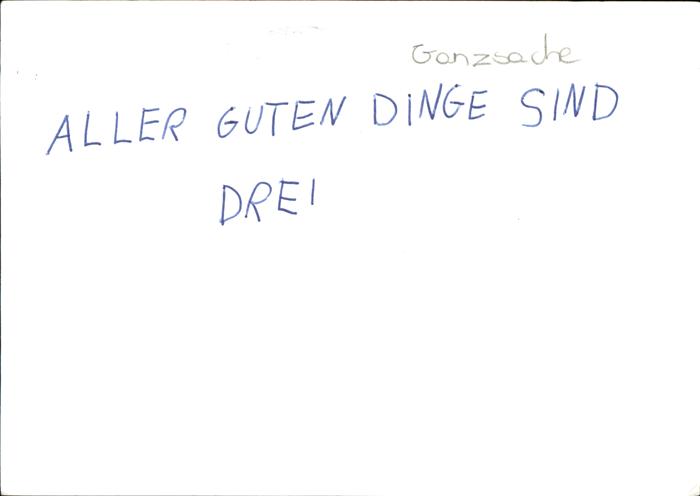 Ganzsache
ALLER GUTEN DiNGE SIND
DREI